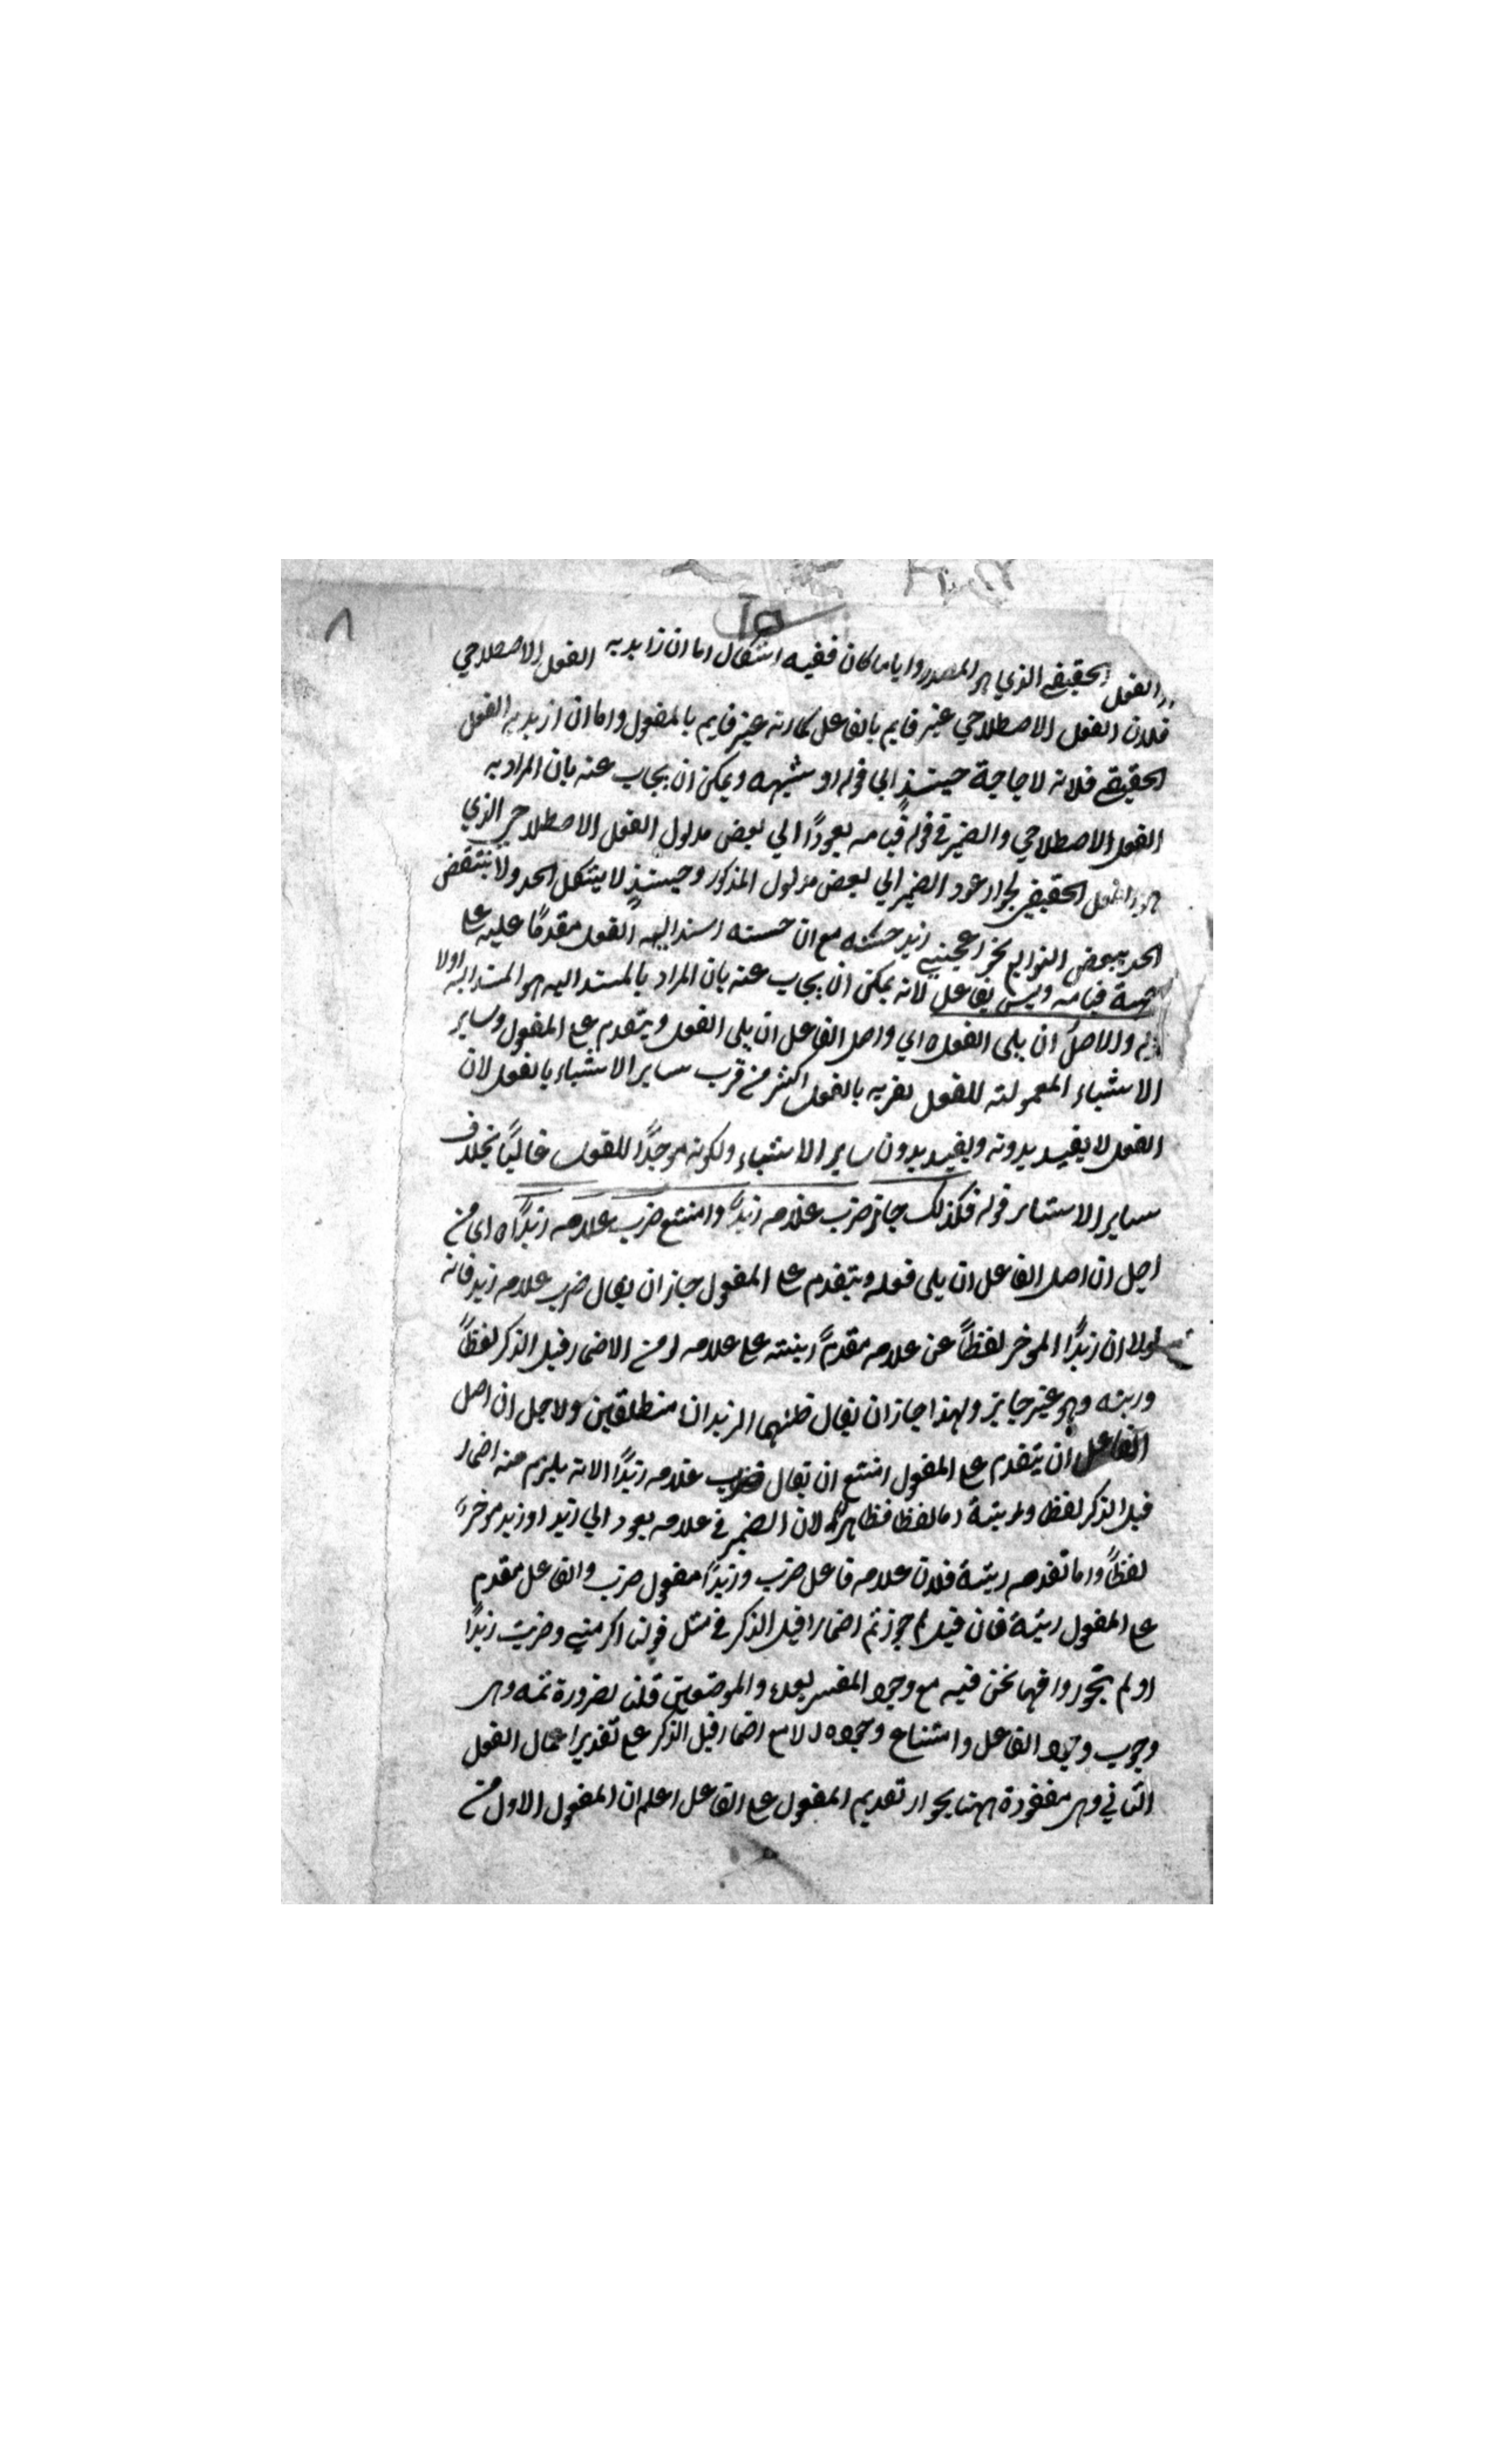 ٨
٢٥
الفعل الحقيقي الذي هو المصدر وايا ما كان ففيه اشكال اما ان نريد به الفعل الاصطلاحي
فلان الفعل الاصطلاحي غير قايم بالفاعل كما انه غير قايم بالمفعول واما ان اريد به الفعل
الحقيقي فلانه لا حاجة حينئذٍ الي قوله او شبهه ويمكن ان يجاب عنه بان المراد به
الفعل الاصطلاحي والضمير في قوله قيامه يعود الي بعض مدلول الفعل الاصطلاحي الذي
هو الفعل الحقيقي لجواز عود الضمير الي بعض مدلول المذكور وحينئذٍ لا يشكل الحد ولا ينتقض
الحد ببعض التوابع نحو اعجبني زيد حسنه مع ان حسنه اسند اليه الفعل مقدمًا عليه علي
جهة قيامه وليس بفاعل لانه يمكن ان يجاب عنه بان المراد بالمسند اليه هو المسند اليه اولا
والاصل ان يلي الفعل ه اي واصل الفاعل ان يلي الفعل ويتقدم علي المفعول وساير
الاشياء المعمولة للفعل لقربه بالفعل اكثر من قرب ساير الاشياء بالفعل لان
الفعل لا يفيد بدونه ويفيد بدون ساير الاشياء ولكونه موجدًا للفعل غالبًا بخلاف
ساير الاشياء قوله فلذلك جاز ضرب غلامه زيدٌ وامتنع ضرب غلامه زيدًا ه اي من
اجل ان اصل الفاعل ان يلي فعله ويتقدم علي المفعول جاز ان يقال ضرب غلامه زيد فانه
لولا ان زيدًا الموخر لفظًا عن غلامه مقدمٌ رتبته علي غلامه لزم الاضمار قبل الذكر لفظًا
ورتبته وهو غير جايز ولهذا جاز ان يقال ظنهما الزيدان منطلقين ولاجل ان اصل
الفاعل ان يتقدم علي المفعول امتنع ان يقال ضرب غلامه زيدًا لانه يلزم منه اضمار
قبل الذكر لفظا ورتبة اما لفظا فظاهر لان الضمير في غلامه يعود الي زيد وزيد موخر
لفظًا واما تقدمه رتبة فلان غلامه فاعل ضرب وزيدًا مفعول ضرب والفاعل مقدم
علي المفعول رتبة فان قيل لم جوزتم اضمارا قبل الذكر في مثل قولنا اكرمني وضربت زيدًا
ولم تجوزوا فيما نحن فيه مع وجود المفسر بعده والموضعين قلنا لضرورة ثمه وهي
وجوب وجود الفاعل وامتناع وجوده الا مع اضمار قبل الذكر علي تقدير اعمال الفعل
الثاني وهي مفقودة ههنا بجواز تقديم المفعول علي الفاعل اعلم ان المفعول الاول من